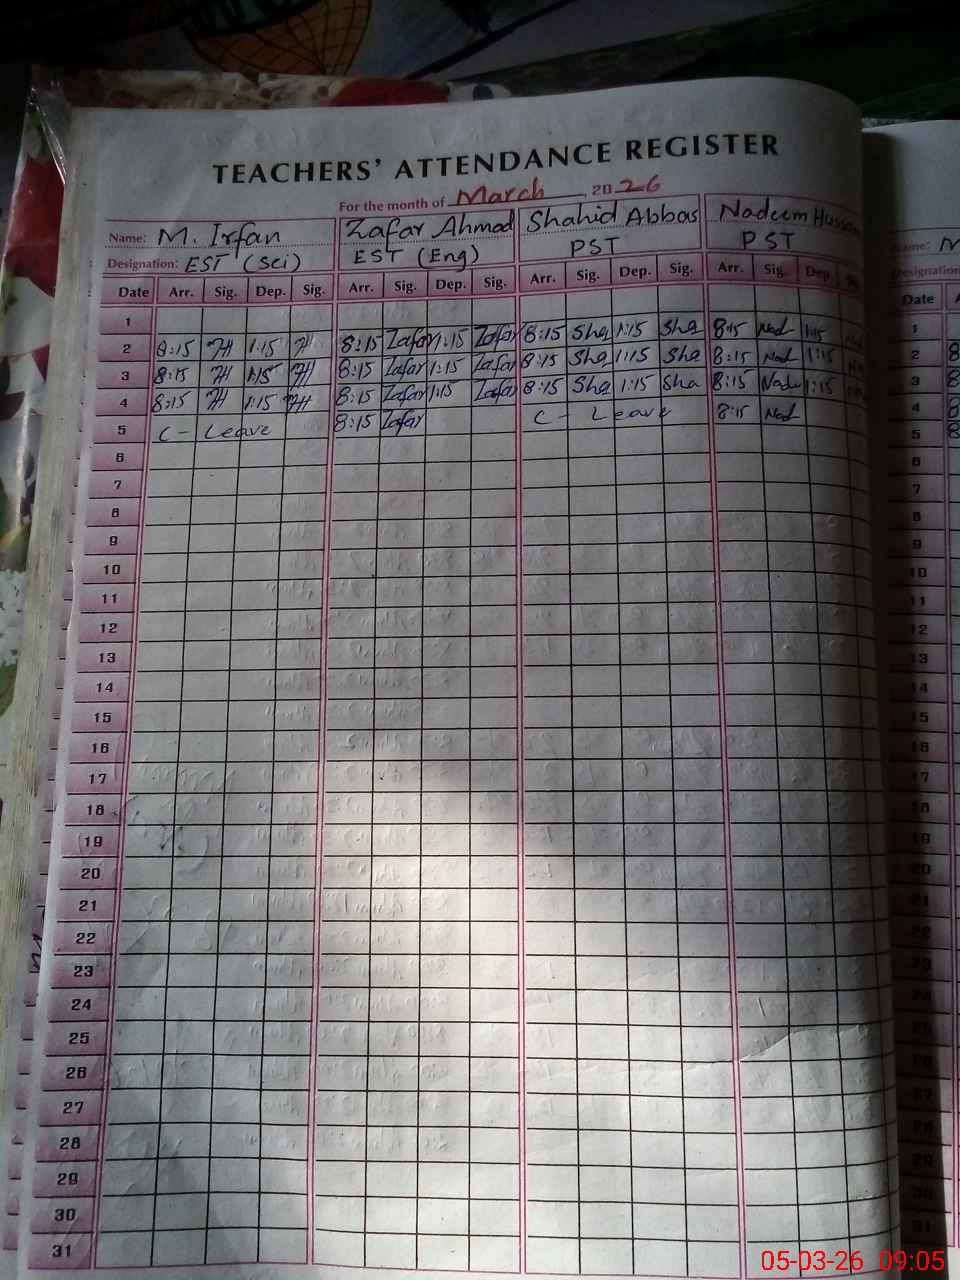 TEACHERS' ATTENDANCE REGISTER
For the month of March, 2026
Name: M. Irfan Zafar Ahmad Shahid Abbas Nadeem
Designation: EST (Sci) EST (Eng) PST PST
Date Arr. Sig. Dep. Sig. Arr. Sig. Dep. Sig. Arr. Sig. Dep. Sig. Arr. Sig. Dep.
1
2 8:15 1:15 8:15 Zafar 1:15 Zafar 8:15 Sha 1:15 Sha 8:15 Nad 1:15
3 8:15 1:15 8:15 Zafar 1:15 Zafar 8:15 Sha 1:15 Sha 8:15 Nad 1:15
4 8:15 1:15 8:15 Zafar 1:15 Zafar 8:15 Sha 1:15 Sha 8:15 Nad 1:15
5 C - Leave 8:15 Zafar C - Leave 8:15 Nad
6
7
8
9
10
11
12
13
14
15
16
17
18
19
20
21
22
23
24
25
26
27
28
29
30
31
Name: M
Designation
Date
1
2 8
3 8
4 8
5 8
6
7
8
9
10
11
12
13
14
15
16
17
18
19
20
21
22
23
24
25
26
27
28
29
30
31
05-03-26 09:05